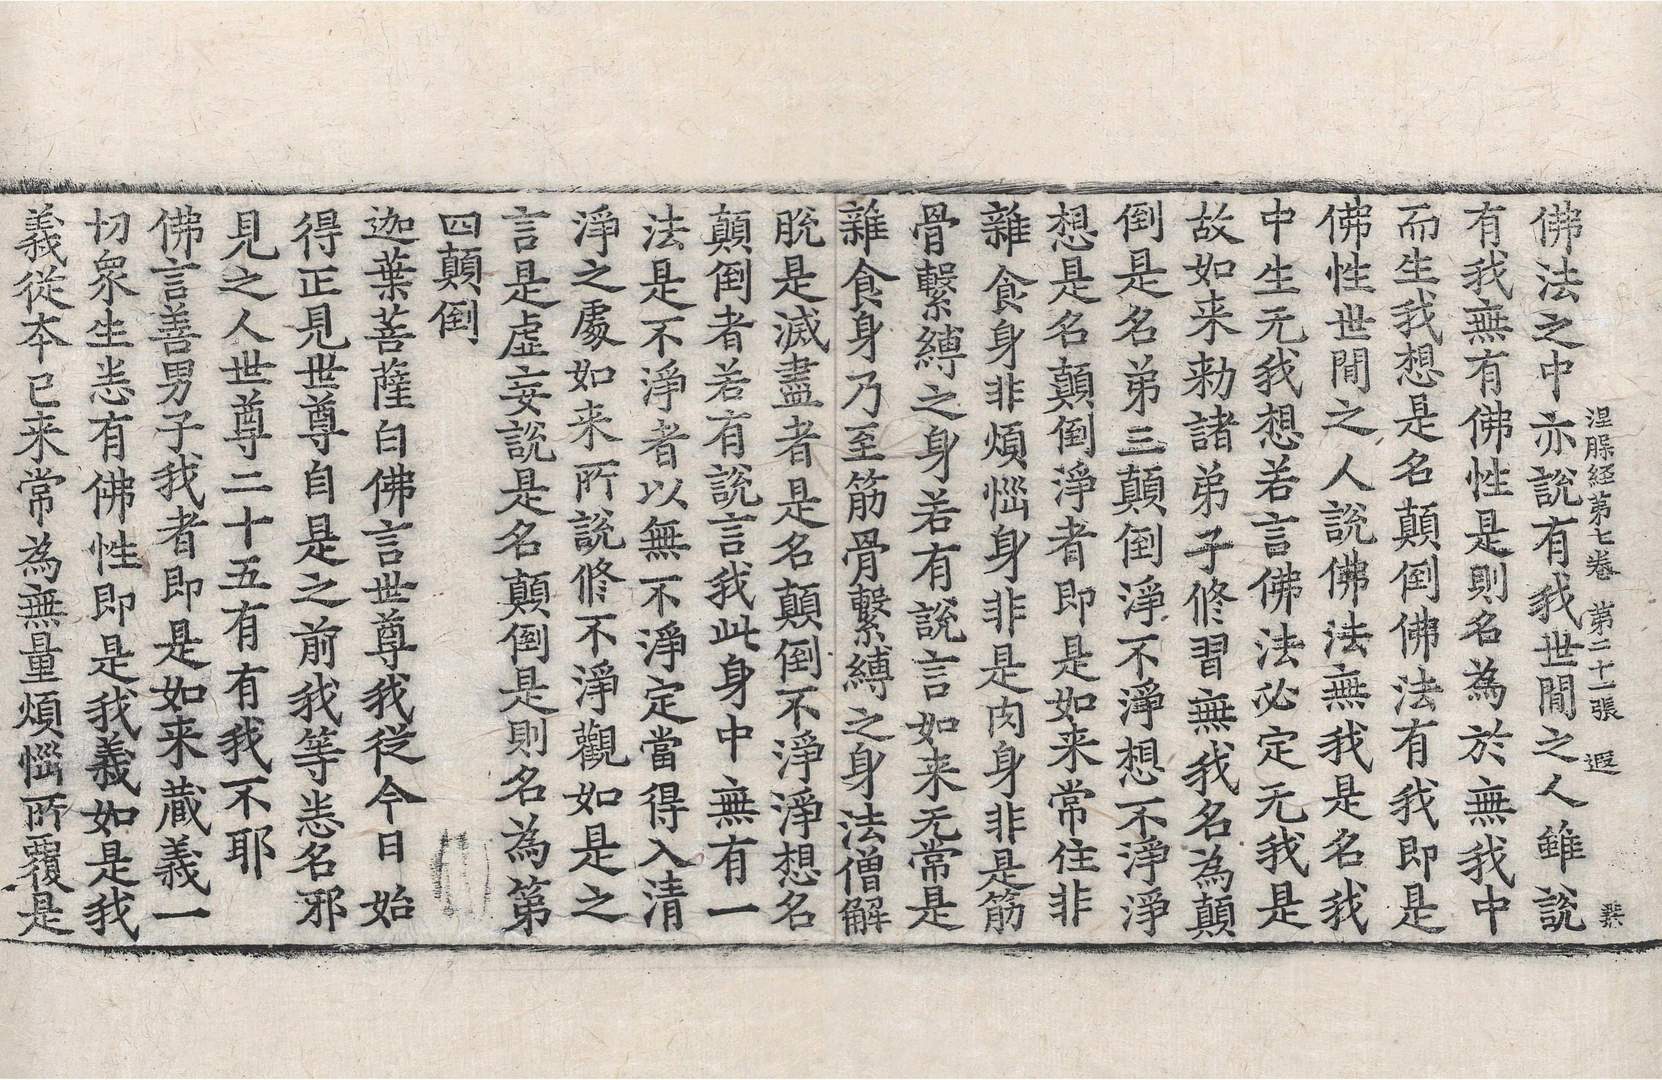 涅脲経第七卷 第二十一張 遐
佛法之中亦說有我世間之人雖說
有我無有佛性是則名為於無我中
而生我想是名顛倒佛法有我即是
佛性世間之人說佛法無我是名我
中生无我想若言佛法必定无我是
故如来勑諸弟子修習無我名為顛
倒是名弟三顛倒淨不淨想不淨淨
想是名顛倒淨者即是如来常住非
雜食身非煩惱身非是肉身非是筋
骨繫縛之身若有說言如来无常是
雜食身乃至筋骨繫縛之身法僧解
脫是滅盡者是名顛倒不淨淨想名
顛倒者若有說言我此身中無有一
法是不淨者以無不淨定當得入清
淨之處如来所說修不淨觀如是之
言是虛妄說是名顛倒是則名為第
四顛倒
迦葉菩薩白佛言世尊我從今日始
得正見世尊自是之前我等悉名邪
見之人世尊二十五有有我不耶
佛言善男子我者即是如来蔵義一
切衆生悉有佛性即是我義如是我
義從本已来常為無量煩惱所覆是